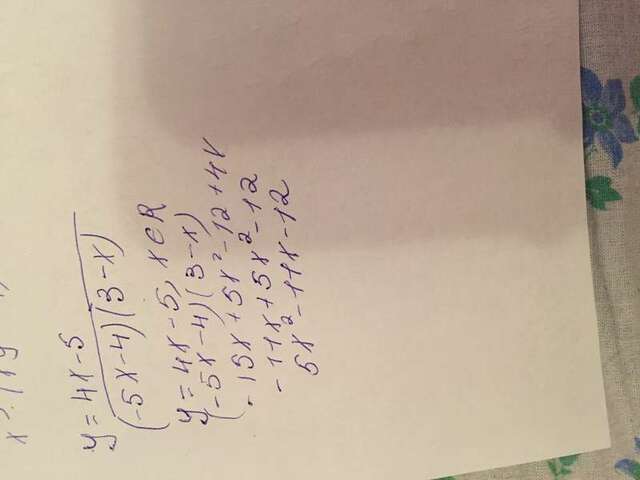 y = 4x-5
(-5x-4)(3-x)
y = 4x-5, x∈R
(-5x-4)(3-x)
-15x+5x²-12+4x
-11x+5x²-12
5x²-11x-12